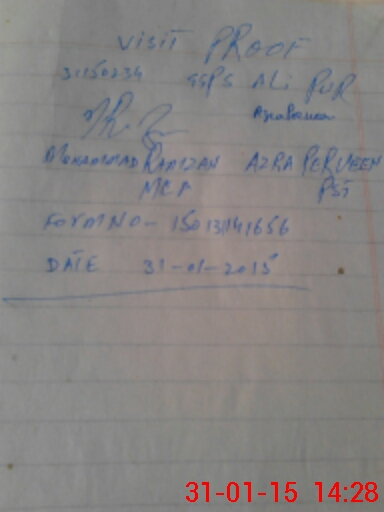 VISIT PROOF
31150234 GGPS ALI PUR
Azra Perveen
MUHAMMAD RAMZAN AZRA PERVEEN
MCA PST
FORM NO- 15013141656
DATE 31-01-2015
31-01-15 14:28